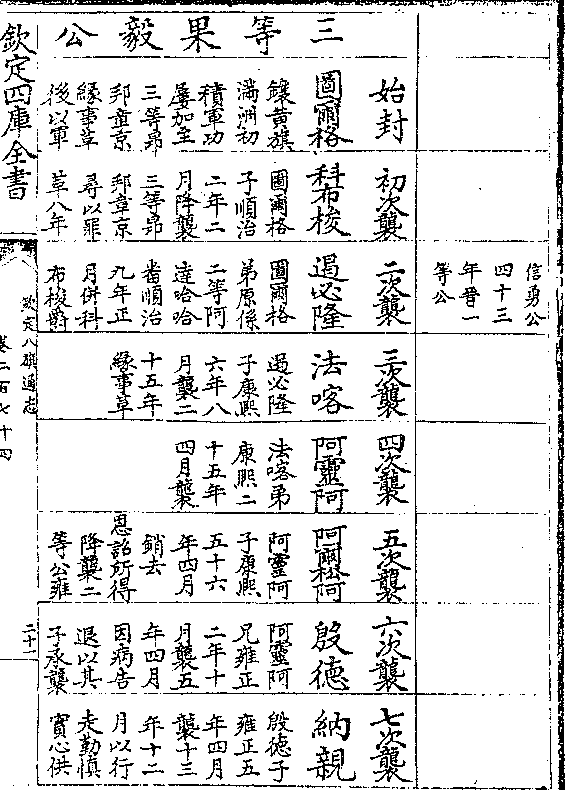 信勇公
四十三
年晉一
等公
三等果毅公
始封
圖爾格
鑲黄旗
滿洲初
積軍功
屢加至
三等昂
邦章京
緣事革
後以軍
初次襲
科布梭
圖爾格
子順治
二年二
月降襲
三等昂
邦章京
尋以罪
革八年
二次襲
遏必隆
圖爾格
弟原係
二等阿
達哈哈
番順治
九年正
月併科
布梭爵
三次襲
法喀
遏必隆
子康熙
六年八
月襲二
十五年
緣事革
四次襲
阿靈阿
法喀弟
康熙二
十五年
四月襲
五次襲
阿爾松阿
阿靈阿
子康熙
五十六
年四月
銷去
恩詔所得
降襲二
等公雍
六次襲
殷德
阿靈阿
兄雍正
二年十
月襲五
年四月
因病告
退以其
子承襲
七次襲
納親
殷德子
雍正五
年四月
襲十三
年十二
月以行
走勤慎
實心供
欽定四庫全書
欽定八旗通志
卷二百七十四
二十一